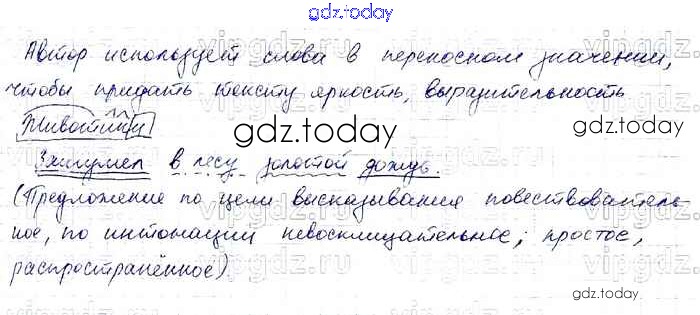 gdz.today
Автор использует слова в переносном значении,
чтобы придать тексту яркость, выразительность
gdz.today
Зашумел в лесу золотой дождь.
(Предложение по цели высказывания повествователь-
ное, по интонации невосклицательное; простое,
распространённое).
gdz.today
gdz.today